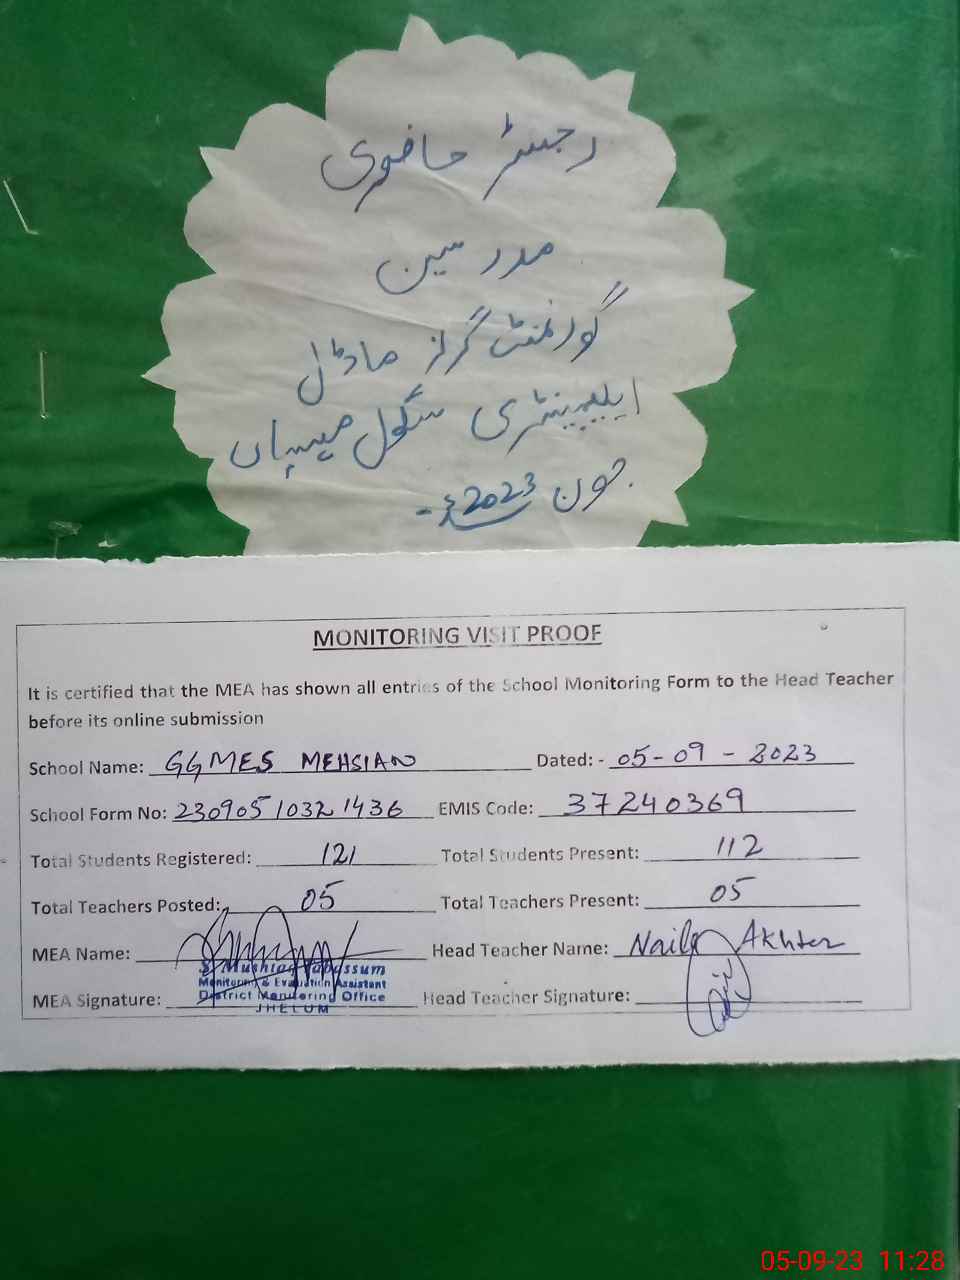 رجسٹر حاضری
مدرسین
گورنمنٹ گرلز ماڈل
ایلیمینٹری سکول میہیاں
جون 2023ء-
MONITORING VISIT PROOF
It is certified that the MEA has shown all entries of the School Monitoring Form to the Head Teacher
before its online submission
School Name: GGMES MEHSIAN Dated: - 05-09-2023
School Form No: 230905 1032 1436 EMIS Code: 37240369
Total Students Registered: 121 Total Students Present: 112
Total Teachers Posted: 05 Total Teachers Present: 05
MEA Name: Head Teacher Name: Naila Akhter
S. Mushtaq Tabassum
Monitoring & Evaluation Assistant
District Monitoring Office
JHELUM
MEA Signature: Head Teacher Signature:
05-09-23 11:28